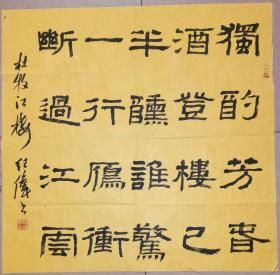 獨酌芳春
酒登樓已
半醺誰驚
一行鴈衝
斷過江雲
杜牧江樓